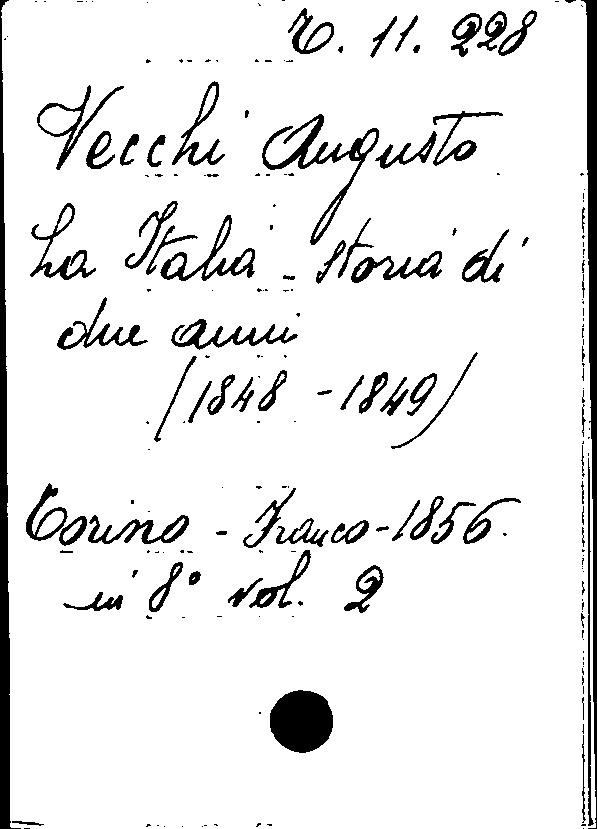 T. 11. 228
Vecchi Augusto
La Italia - storia di
due anni
(1848 - 1849)
Torino - Franco - 1856.
in 8° vol. 2